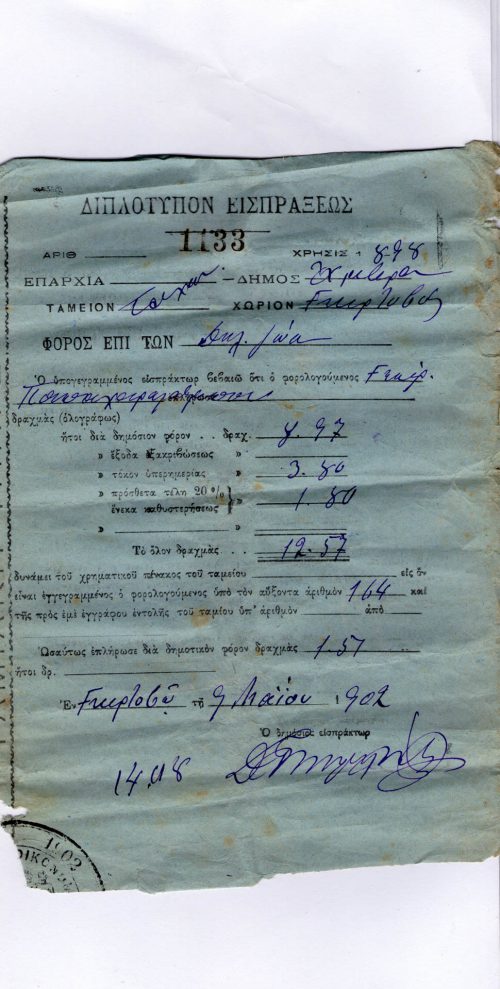 ΔΙΠΛΟΤΥΠΟΝ ΕΙΣΠΡΑΞΕΩΣ
1133
ΑΡΙΘ ΧΡΗΣΙΣ 1898
ΕΠΑΡΧΙΑ ΔΗΜΟΣ
ΤΑΜΕΙΟΝ ΧΩΡΙΟΝ
ΦΟΡΟΣ ΕΠΙ ΤΩΝ ζώα
Ὁ ὑπογεγραμμένος εἰσπράκτωρ βεβαιῶ ὅτι ὁ φορολογούμενος
δραχμὰς (ὁλογράφως)
ἤτοι διὰ δημόσιον φόρον . . δραχ. 7.97
» ἔξοδα ἐξακριβώσεως » 
» τόκον ὑπερημερίας » 3.80
» πρόσθετα τέλη 20 %
ἕνεκα καθυστερήσεως » 1.80
» »
Τὸ ὅλον δραχμὰς . . 12.57
δυνάμει τοῦ χρηματικοῦ πίνακος τοῦ ταμείου εἰς ὃν
εἶναι ἐγγεγραμμένος ὁ φορολογούμενος ὑπὸ τὸν αὔξοντα ἀριθμὸν 164 καὶ
τῆς πρὸς ἐμὲ ἐγγράφου ἐντολῆς τοῦ ταμίου ὑπ' ἀριθμὸν ἀπὸ
Ὡσαύτως ἐπλήρωσε διὰ δημοτικὸν φόρον δραχμὰς 1.51
ἤτοι δρ.
Ἐν τῇ 9 Μαΐου 1902
Ὁ δημόσιος εἰσπράκτωρ
14.08
1902
ΟΙΚΟΝΟΜ